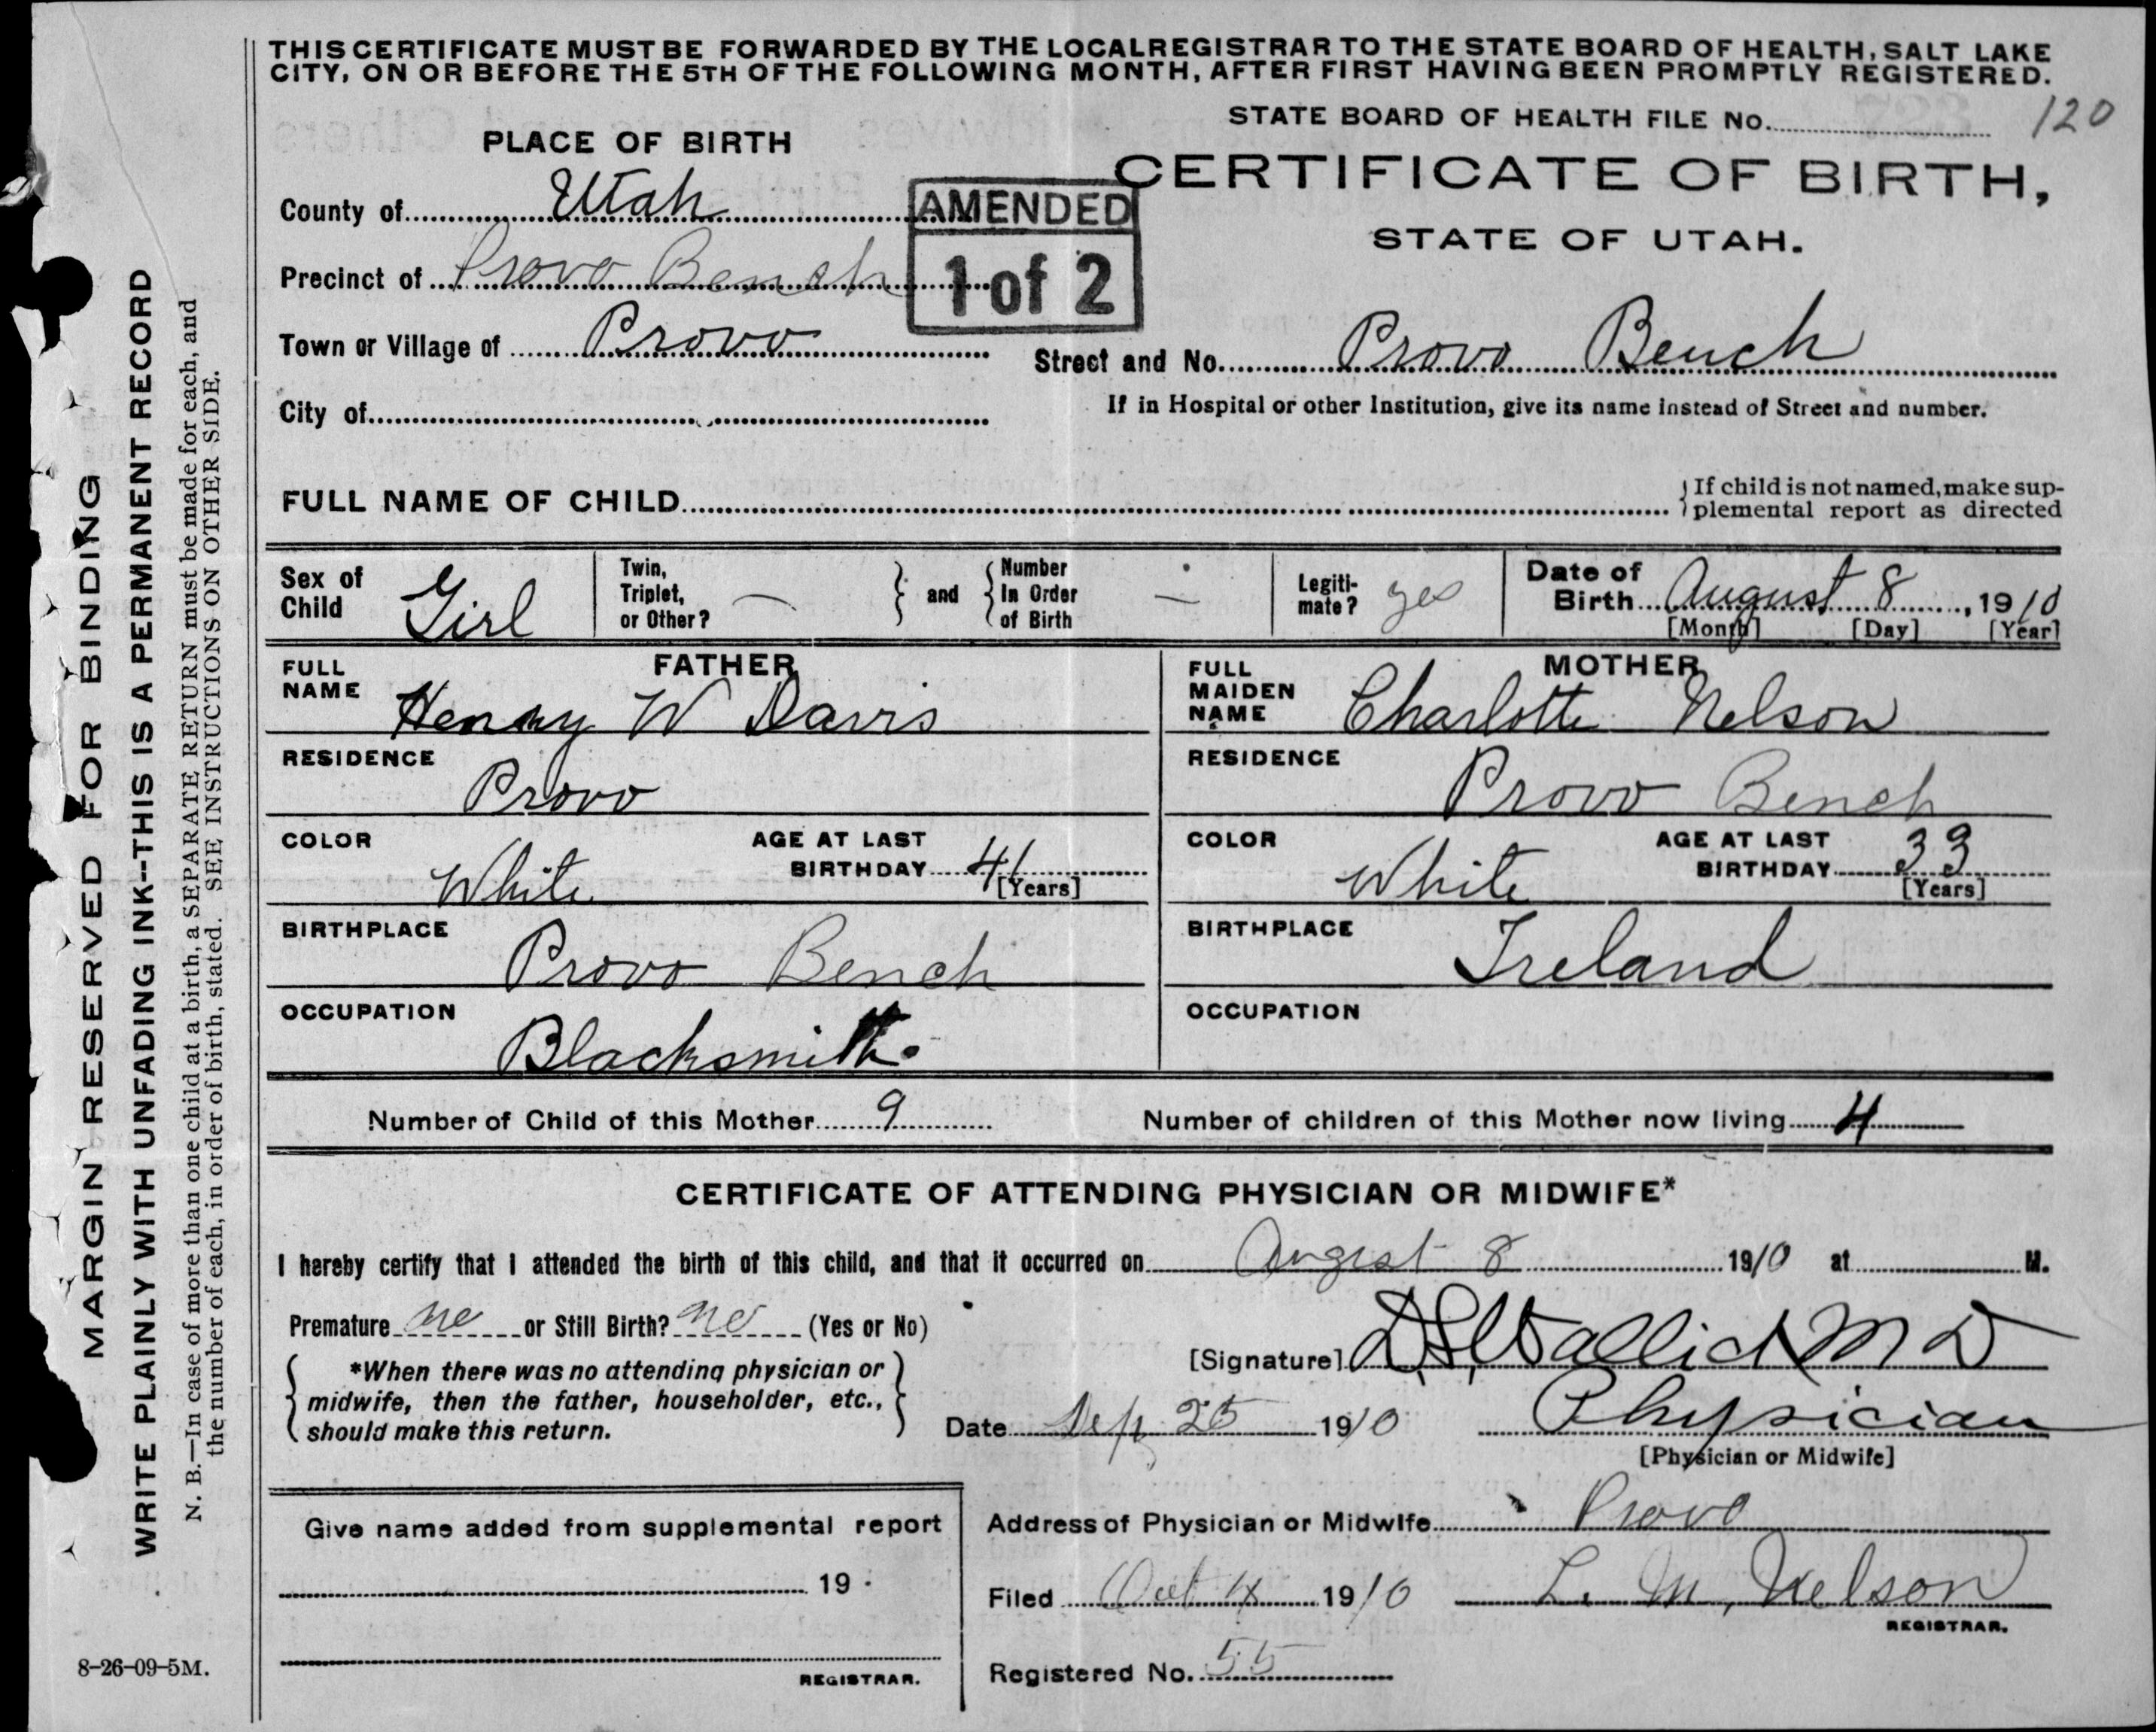 THIS CERTIFICATE MUST BE FORWARDED BY THE LOCAL REGISTRAR TO THE STATE BOARD OF HEALTH, SALT LAKE
CITY, ON OR BEFORE THE 5TH OF THE FOLLOWING MONTH, AFTER FIRST HAVING BEEN PROMPTLY REGISTERED.
STATE BOARD OF HEALTH FILE No. 120
PLACE OF BIRTH
CERTIFICATE OF BIRTH,
STATE OF UTAH.
County of Utah
AMENDED
1 of 2
Precinct of Provo Bench
Town or Village of Provo
Street and No. Provo Bench
City of
If in Hospital or other Institution, give its name instead of Street and number.
FULL NAME OF CHILD
If child is not named, make sup-
plemental report as directed
Sex of
Child Girl
Twin,
Triplet,
or Other? —
and
Number
In Order
of Birth —
Legiti-
mate? yes
Date of
Birth August 8, 1910
[Month] [Day] [Year]
FATHER
FULL
NAME Henry W Davis
RESIDENCE
Provo
COLOR
White
AGE AT LAST
BIRTHDAY 41
[Years]
BIRTHPLACE
Provo Bench
OCCUPATION
Blacksmith.
MOTHER
FULL
MAIDEN
NAME Charlotte Nelson
RESIDENCE
Provo Bench
COLOR
White
AGE AT LAST
BIRTHDAY 33
[Years]
BIRTHPLACE
Ireland
OCCUPATION
Number of Child of this Mother 9
Number of children of this Mother now living 4
CERTIFICATE OF ATTENDING PHYSICIAN OR MIDWIFE*
I hereby certify that I attended the birth of this child, and that it occurred on August 8 1910 at M.
Premature no or Still Birth? no (Yes or No)
*When there was no attending physician or
midwife, then the father, householder, etc.,
should make this return.
[Signature] M D
Date Sep 25 1910
Physician
[Physician or Midwife]
Give name added from supplemental report
19
REGISTRAR.
Address of Physician or Midwife Provo
Filed Oct 4 1910
L. M. Nelson
REGISTRAR.
Registered No. 55
MARGIN RESERVED FOR BINDING
WRITE PLAINLY WITH UNFADING INK--THIS IS A PERMANENT RECORD
N. B.—In case of more than one child at a birth, a SEPARATE RETURN must be made for each, and
the number of each, in order of birth, stated. SEE INSTRUCTIONS ON OTHER SIDE.
8-26-09-5M.